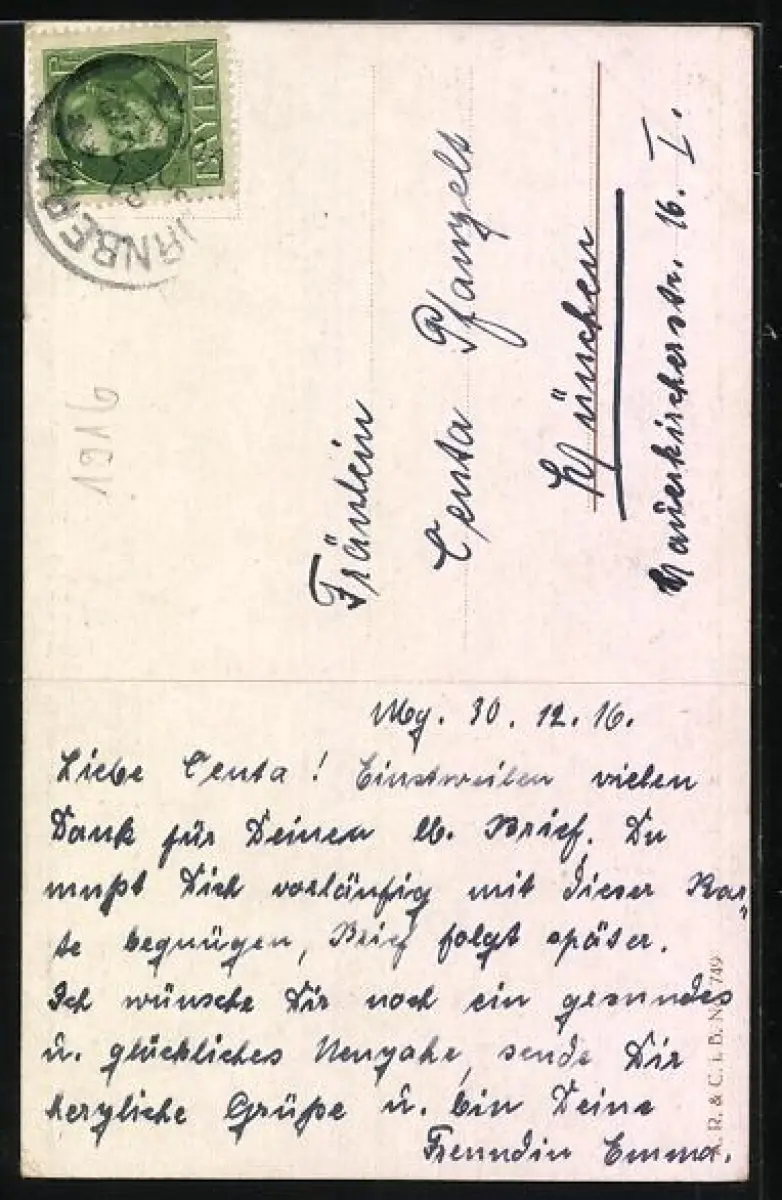 BAYERN
STARNBERG
1916
Fräulein
Centa Pfanzelt
München
Mauerkircherstr. 16. I.
Mbg. 30. 12. 16.
Liebe Centa! Einstweilen vielen
Dank für Deinen lb. Brief. Du
mußt Dich vorläufig mit dieser Kar-
te begnügen, Brief folgt später.
Ich wünsche Dir noch ein gesundes
u. glückliches Neujahr, sende Dir
herzliche Grüße u. bin Deine
Freundin Emma.
R. & C. i. B. No. 749